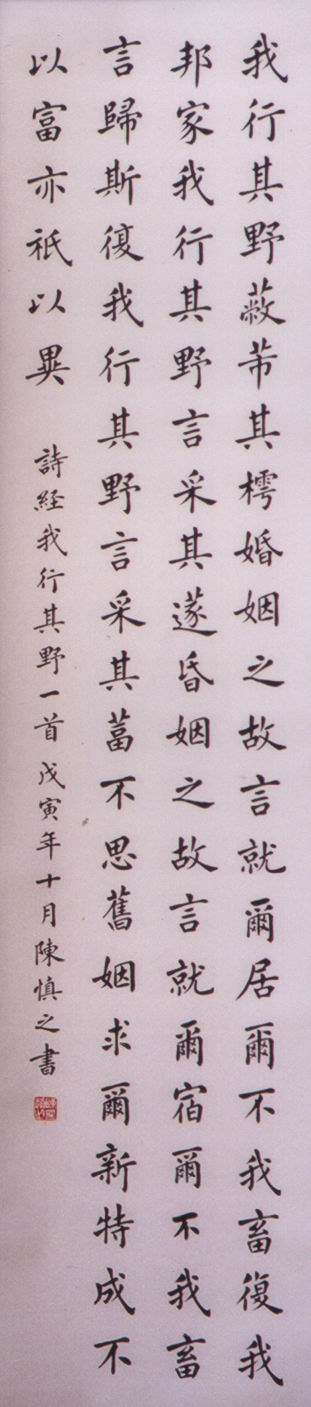 我行其野蔽芾其樗婚姻之故言就爾居爾不我畜復我
邦家我行其野言采其遂昏姻之故言就爾宿爾不我畜
言歸斯復我行其野言采其葍不思舊姻求爾新特成不
以富亦祇以異
詩経我行其野一首戊寅年十月陳慎之書